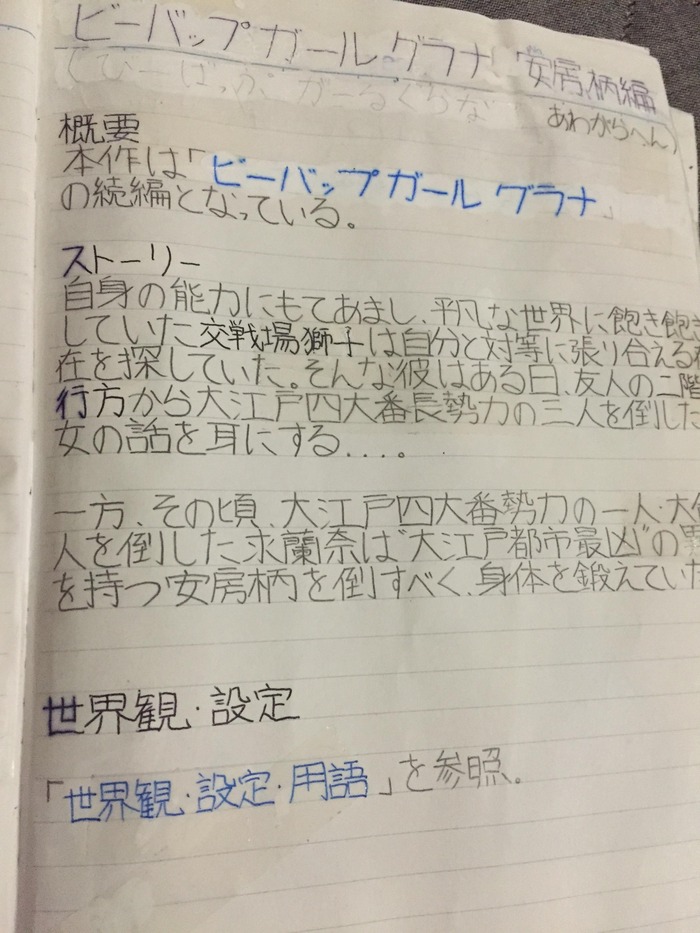 ビーバップガールグラナ 安房柄編
てびーばっぷがーるぐらな あわがらへん)
概要
本作は「ビーバップガールグラナ」
の続編となっている。
ストーリー
自身の能力にもてあまし、平凡な世界に飽き飽き
していた交戦場獅子は自分と対等に張り合える
在を探していた。そんな彼はある日、友人の二階
行方から大江戸四大番長勢力の三人を倒した
女の話を耳にする....。
一方、その頃、大江戸四大番勢力の一人・大
人を倒した求蘭奈は"大江戸都市最凶"の
を持つ安房柄を倒すべく、身体を鍛えていた
世界観・設定
「世界観・設定・用語」を参照。